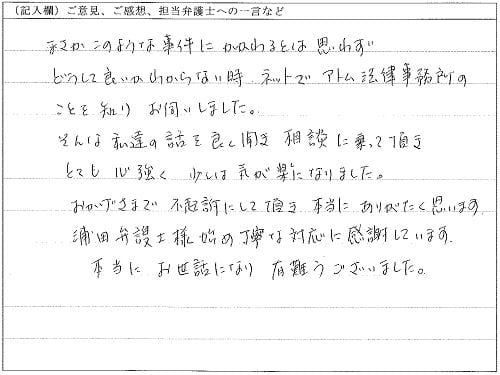 (記入欄) ご意見、ご感想、担当弁護士への一言など
まさかこのような事件にかかわるとは思わず
どうして良いかわからない時 ネットで アトム法律事務所の
ことを知り お伺いしました。
そんな私達の話を良く聞き 相談に乗って頂き
とても心強く 少しは気が楽になりました。
おかげさまで 不起訴にして頂き 本当に ありがたく思います
浦田弁護士様始め丁寧な対応に感謝しています。
本当に お世話になり 有難うございました。